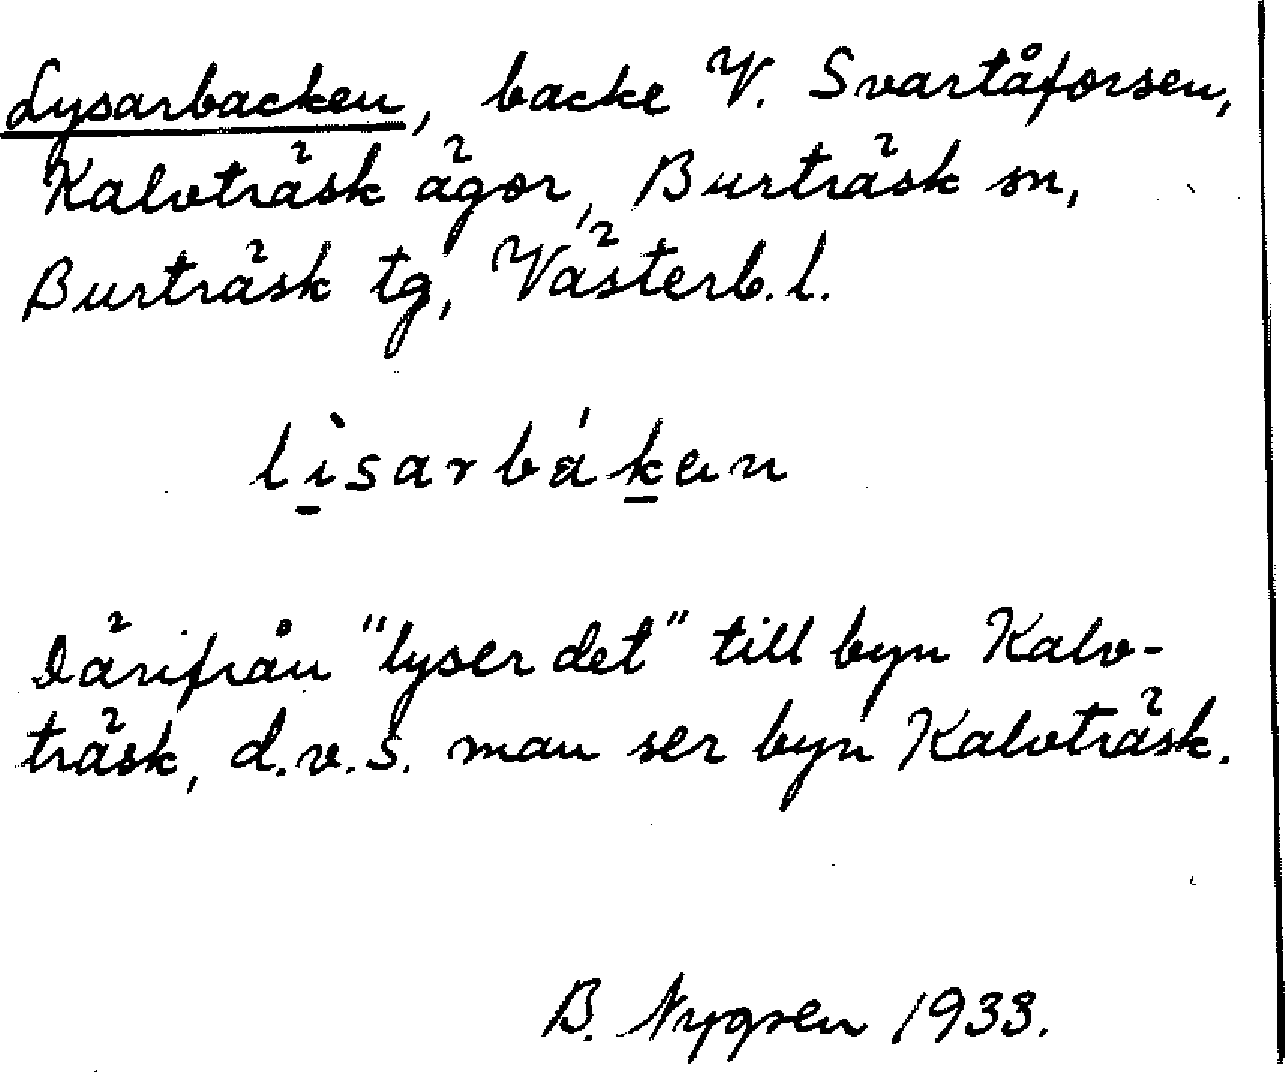 Lysarbacken, backe V. Svartåforsen,
Kalvträsk ägor, Burträsk sn,
Burträsk tg, Västerb. l.
lìsarbákan
Därifrån "lyser det" till byn Kalv-
träsk, d.v.s. man ser byn Kalvträsk.
B. Nygren 1933.